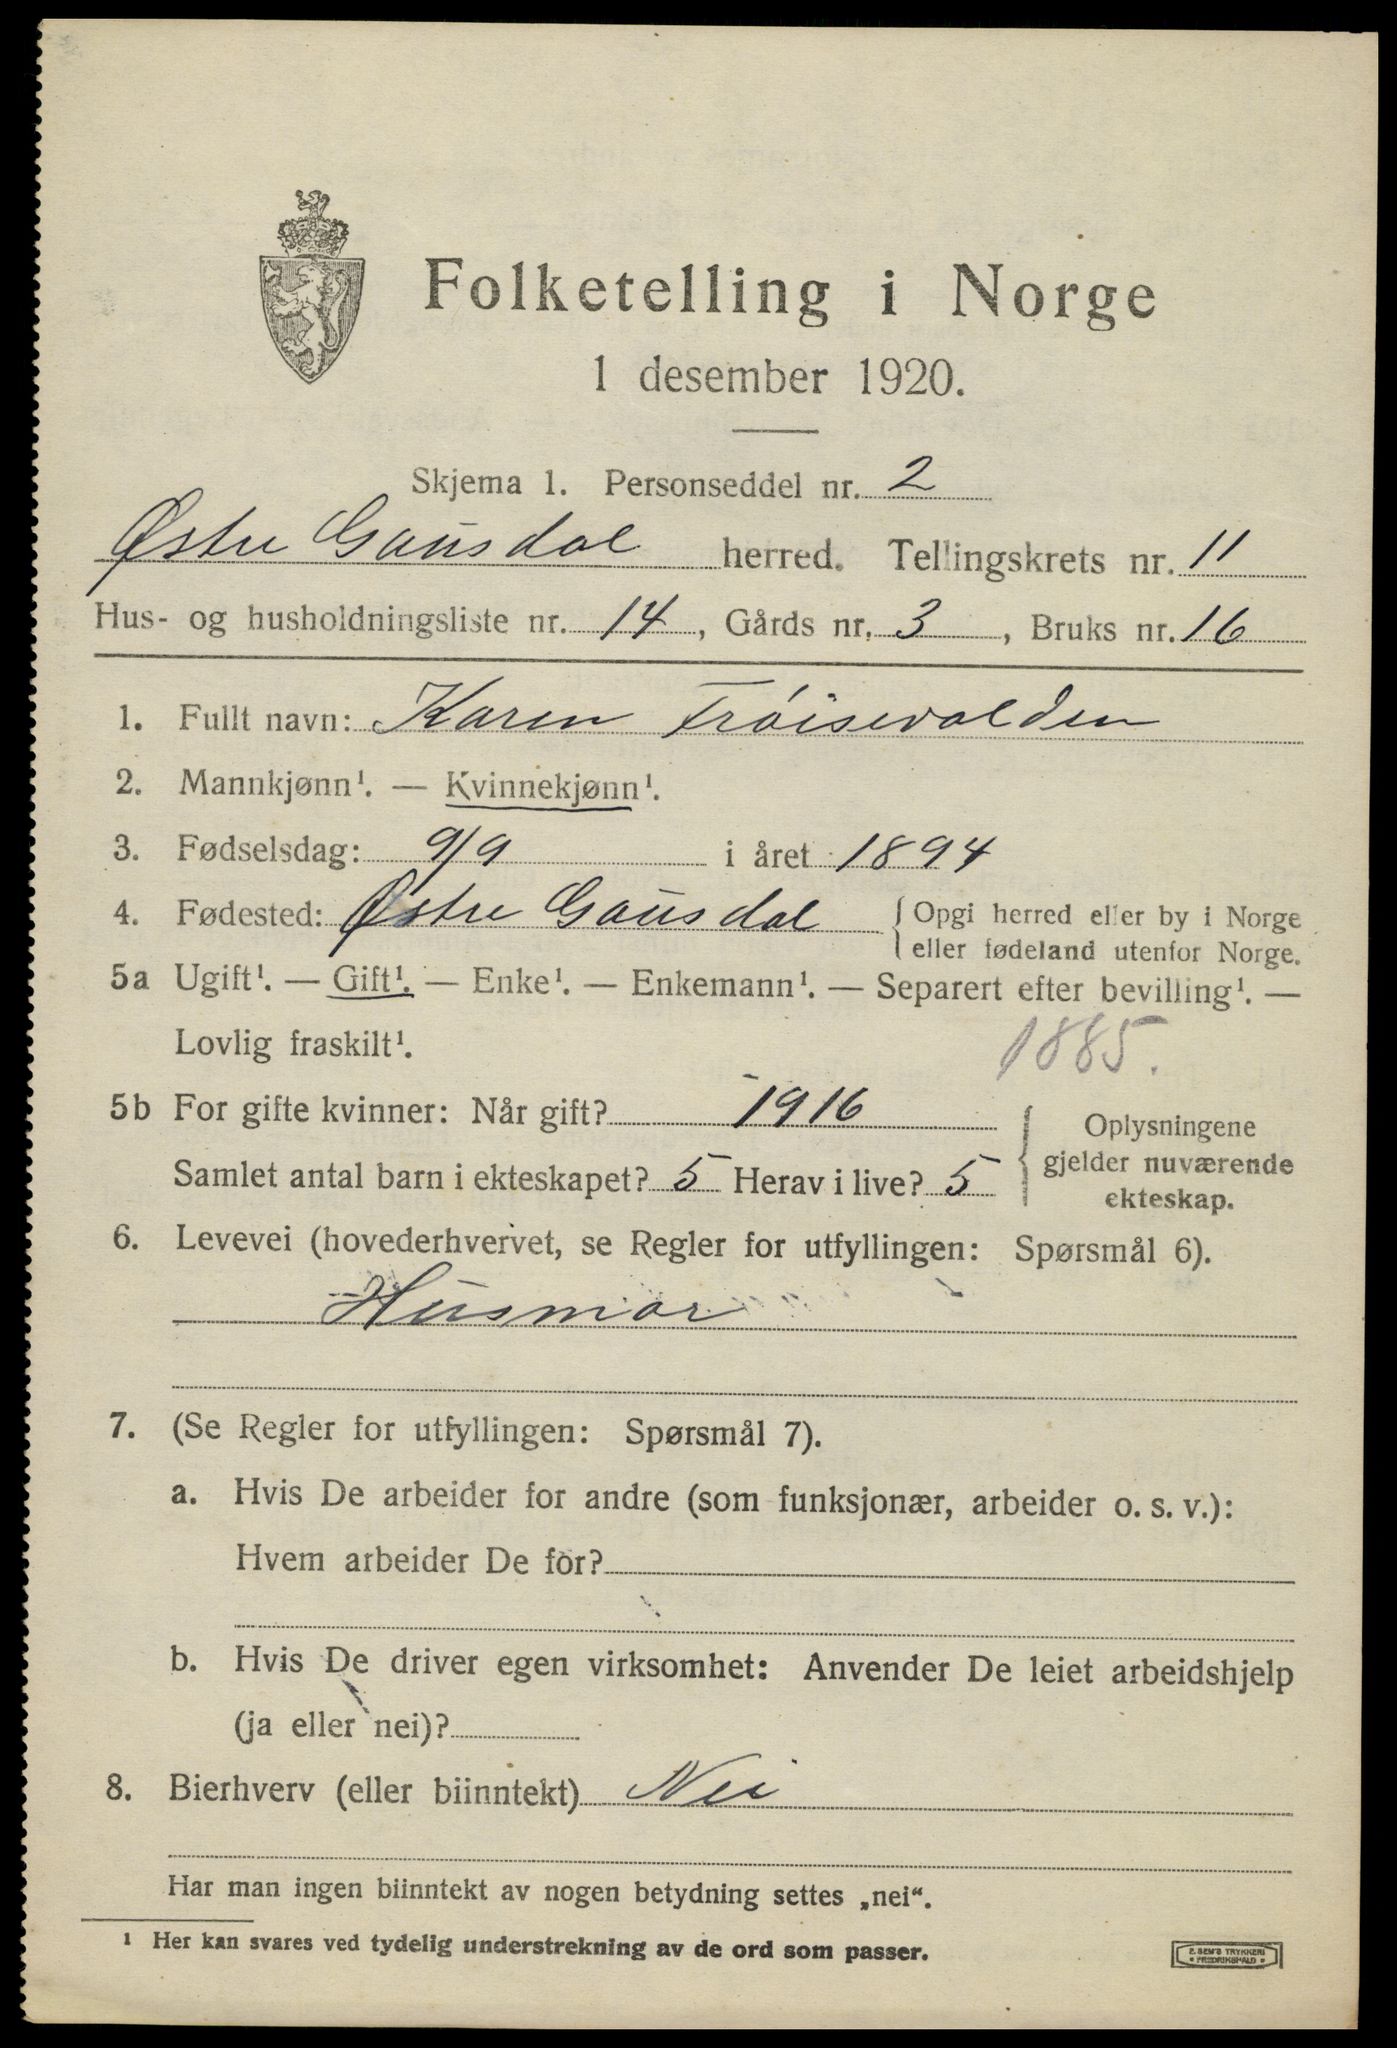 Folketelling i Norge
1 desember 1920.
Skjema 1. Personseddel nr. 2
Østre Gausdal herred. Tellingskrets nr. 11
Hus- og husholdningsliste nr. 14, Gårds nr. 3, Bruks nr. 16
1. Fullt navn: Karen Frøisevolden
2. Mannkjønn¹. — Kvinnekjønn¹.
3. Fødselsdag: 9/9 i året 1894
4. Fødested: Østre Gausdal { Opgi herred eller by i Norge
eller fødeland utenfor Norge.
5a Ugift¹. — Gift¹. — Enke¹. — Enkemann¹. — Separert efter bevilling¹. —
Lovlig fraskilt¹. 1885.
5b For gifte kvinner: Når gift? 1916
Samlet antal barn i ekteskapet? 5 Herav i live? 5
{ Oplysningene
gjelder nuværende
ekteskap.
6. Levevei (hovederhvervet, se Regler for utfyllingen: Spørsmål 6).
Husmor
7. (Se Regler for utfyllingen: Spørsmål 7).
a. Hvis De arbeider for andre (som funksjonær, arbeider o. s. v.):
Hvem arbeider De for?
b. Hvis De driver egen virksomhet: Anvender De leiet arbeidshjelp
(ja eller nei)?
8. Bierhverv (eller biinntekt) Nei
Har man ingen biinntekt av nogen betydning settes „nei“.
¹ Her kan svares ved tydelig understrekning av de ord som passer.
E. SEM'S TRYKKERI
• FREDRIKSHALD •